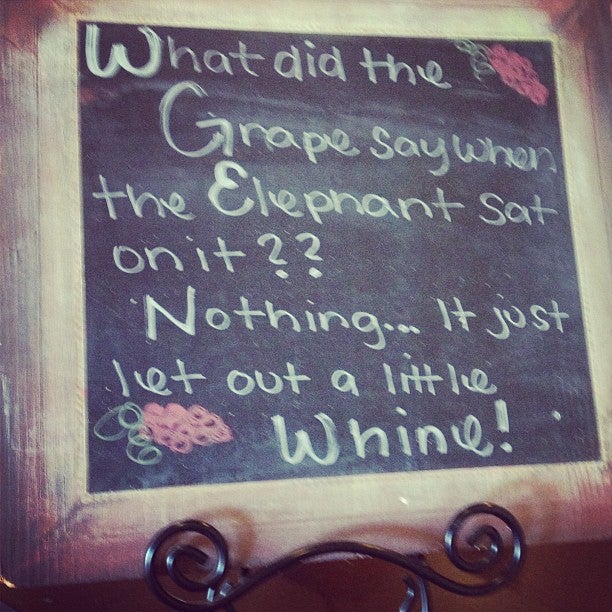 What did the
Grape say when
the Elephant sat
on it??
Nothing... It just
let out a little
Whine!